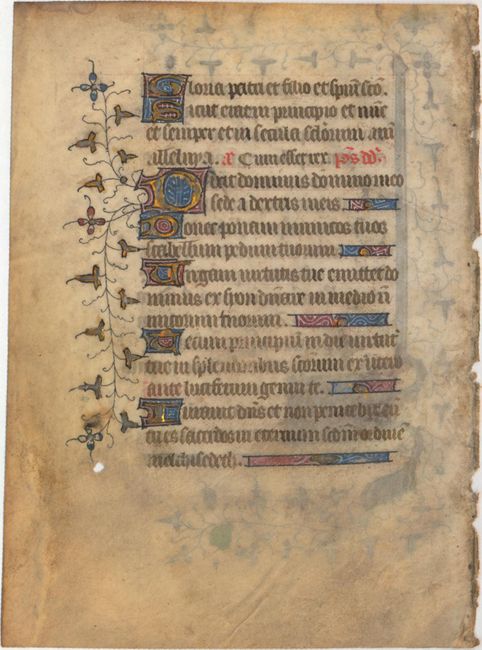 Gloria patri et filio et spiui sco.
Sicut erat in principio et nunc
et semper et in secula sclorum am
alleluya. a Cum esset rex. ps dd.
Dixit dominus domino meo
sede a dextris meis.
Donec ponam inimicos tuos
scabellum pedum tuorum.
Virgam virtutis tue emittet do
minus ex syon dnare in medio in
imicorum tuorum.
Tecum principium in die virtut
tue in splendoribus scorum ex utero
ante luciferum genui te.
Iuravit dns et non penitebit eu
tu es sacerdos in eternum scdm ordine
melchisedech.